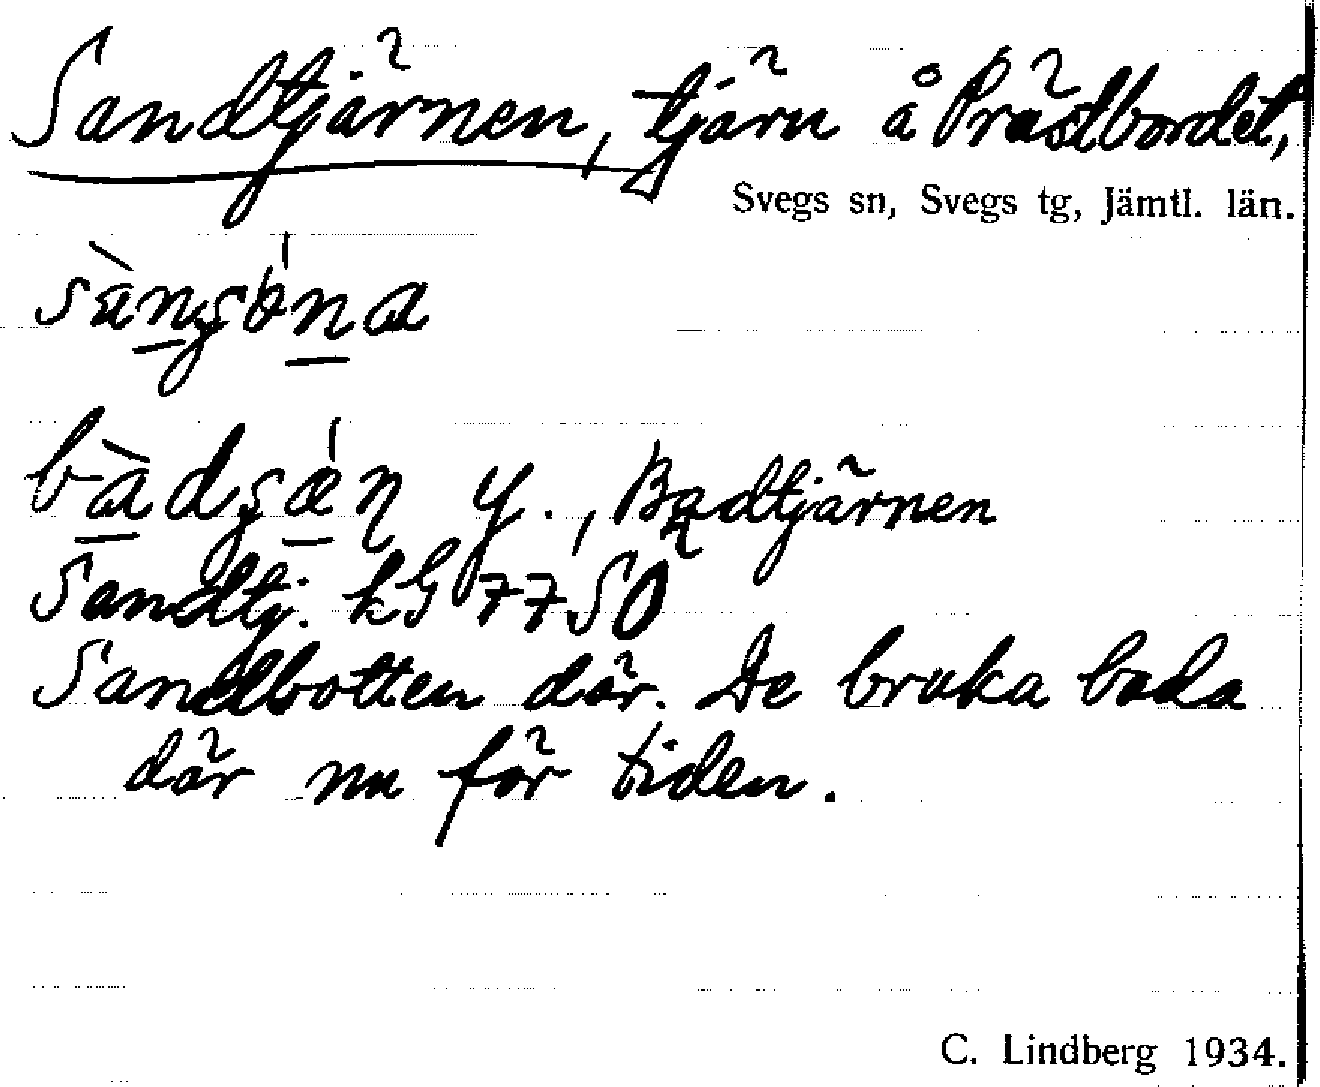 Sandtjärnen, tjärn å Prästbordet,
Svegs sn, Svegs tg, Jämtl. län.
y., Badtjärnen
Sandtj. kG 7750
Sandbotten där. De bruka bada
där nu för tiden.
C. Lindberg 1934.